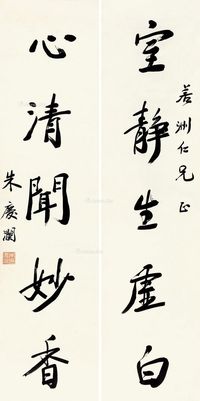 善洲仁兄正
室静生虛白
心清聞妙香
朱慶瀾